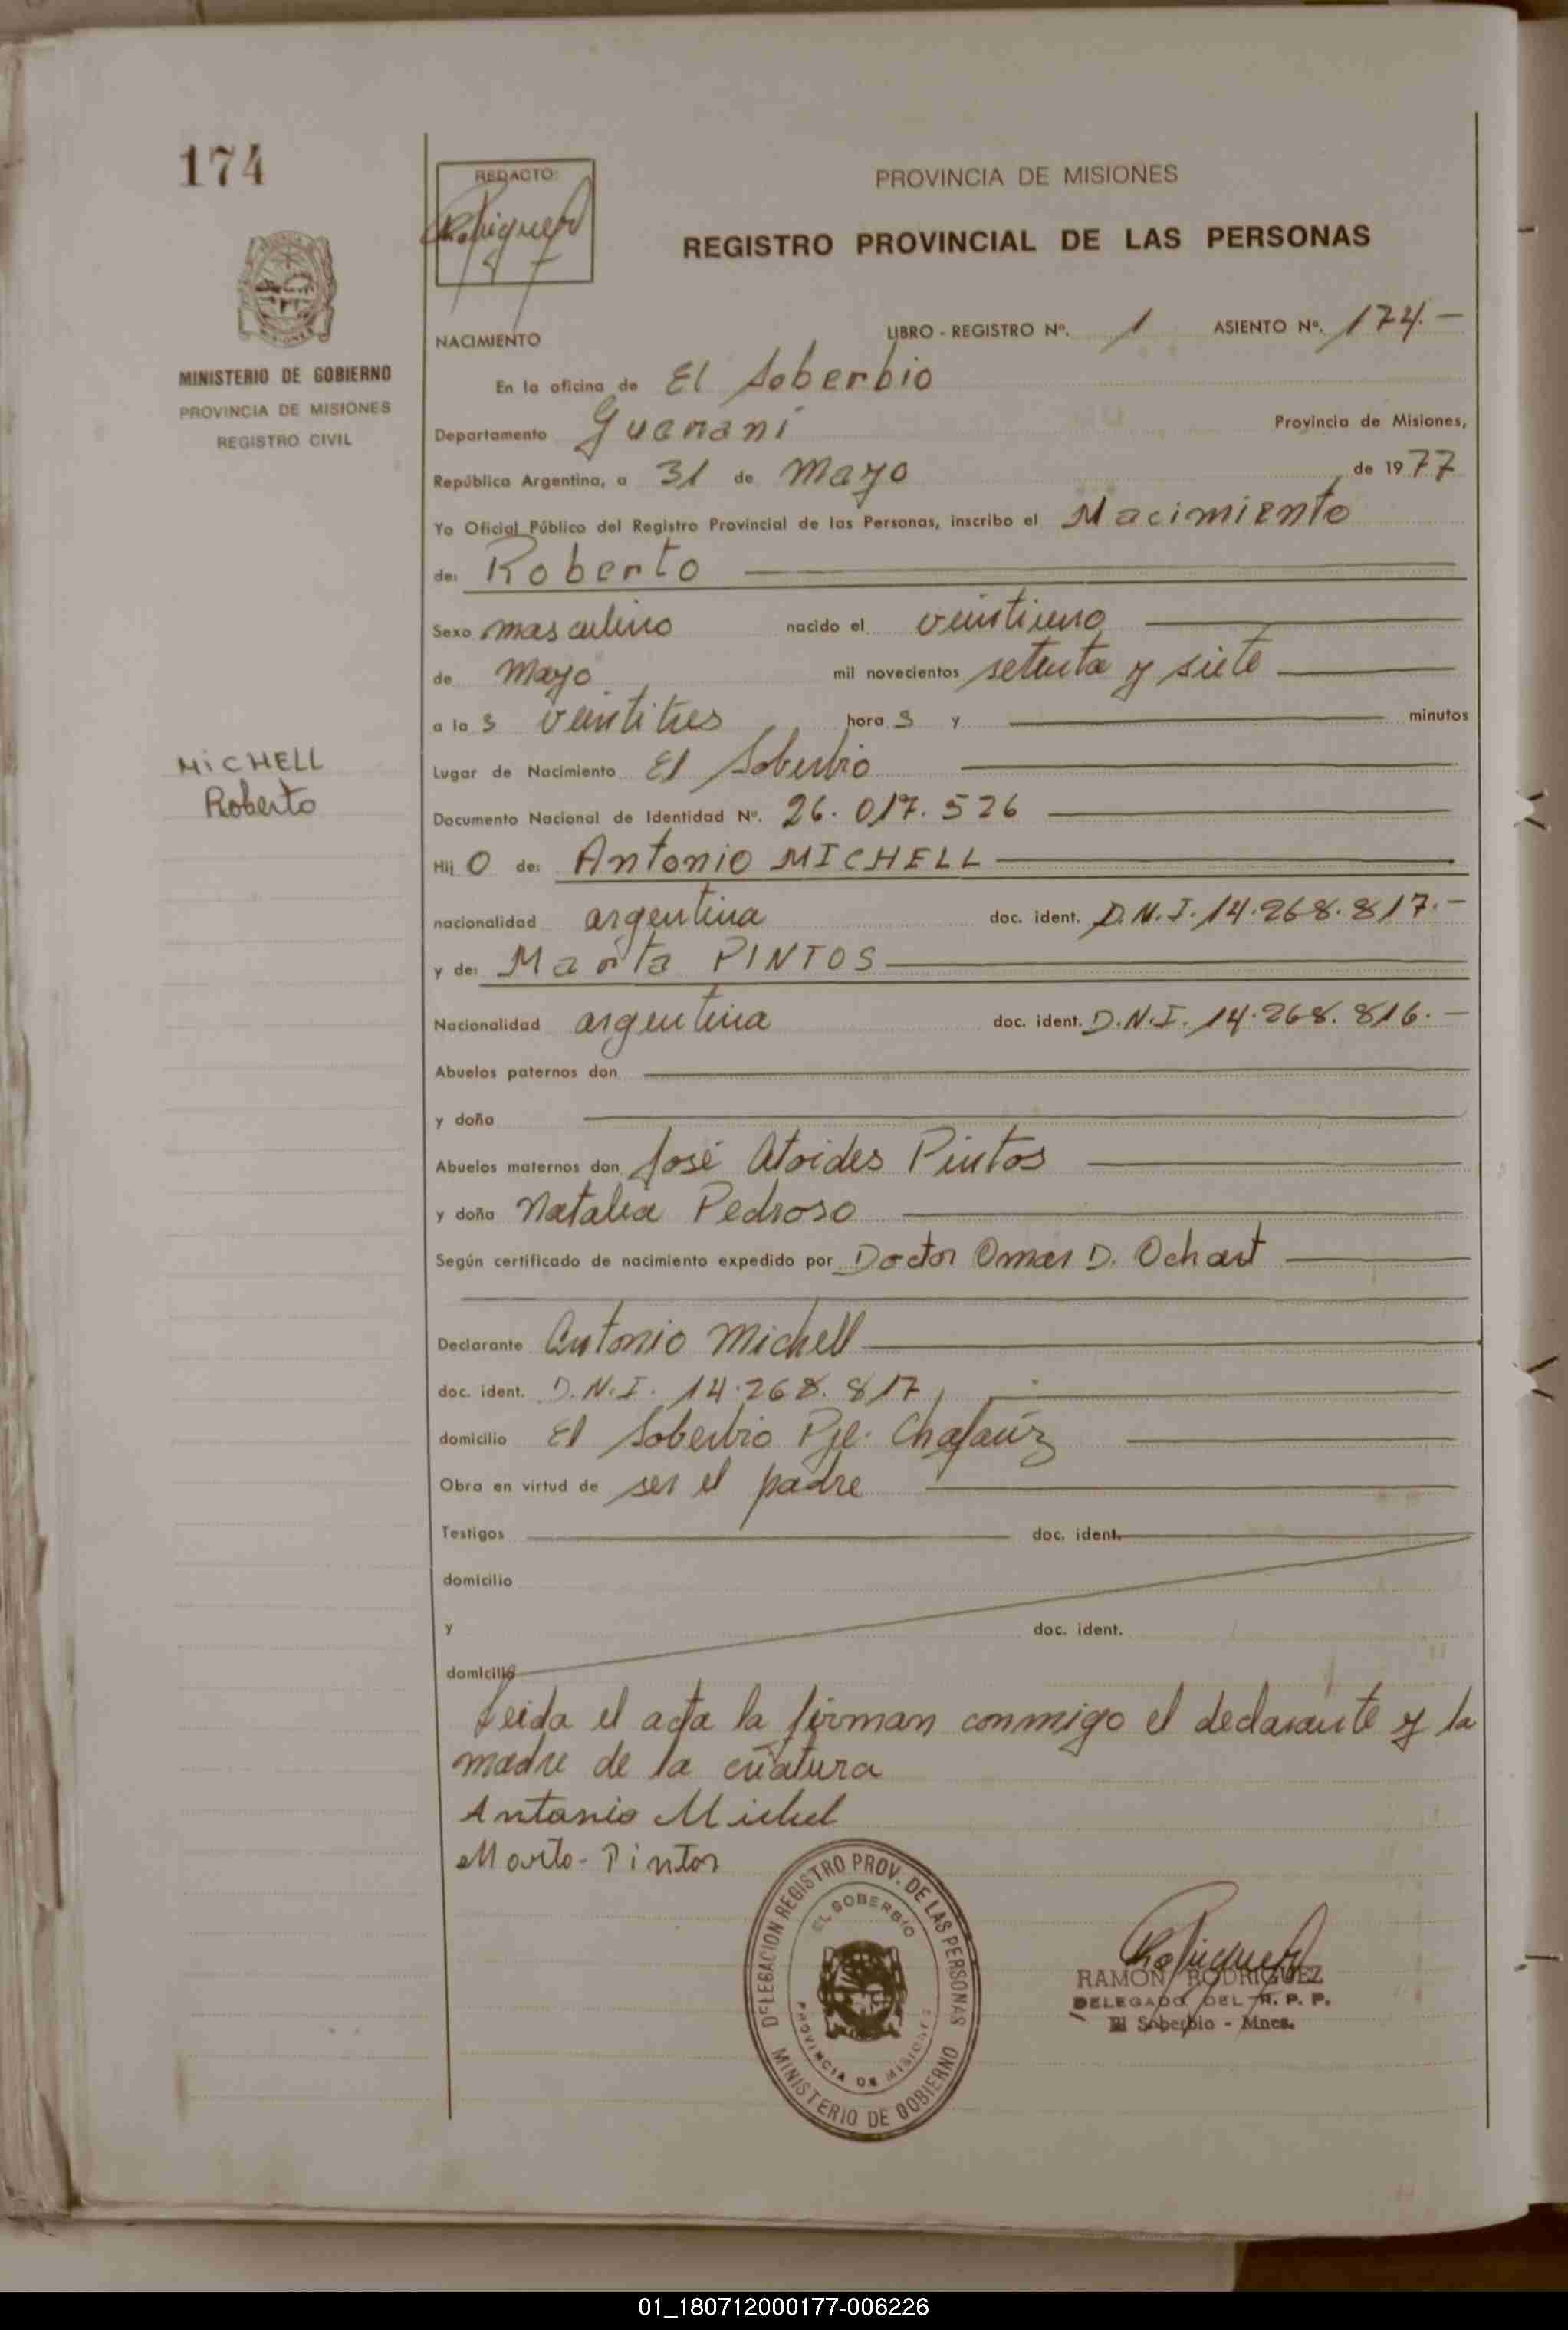 174
REDACTO:
PROVINCIA DE MISIONES
REGISTRO PROVINCIAL DE LAS PERSONAS
MINISTERIO DE GOBIERNO
PROVINCIA DE MISIONES
REGISTRO CIVIL
NACIMIENTO
LIBRO - REGISTRO Nº. 1 ASIENTO Nº. 174.-
En la oficina de El Soberbio
Departamento Guaraní Provincia de Misiones,
República Argentina, a 31 de Mayo de 1977
Yo Oficial Público del Registro Provincial de las Personas, inscribo el Nacimiento
de: Roberto
Sexo masculino nacido el veintiuno
de Mayo mil novecientos setenta y siete
a las veintitres horas y minutos
Lugar de Nacimiento El Soberbio
MiCHELL
Roberto
Documento Nacional de Identidad Nº. 26.017.526
Hijo de: Antonio MICHELL
nacionalidad argentina doc. ident. D.N.I. 14.268.817.-
y de: Marta PINTOS
Nacionalidad argentina doc. ident. D.N.I. 14.268.816.-
Abuelos paternos don
y doña
Abuelos maternos don José Pintos
y doña Natalia Pedroso
Según certificado de nacimiento expedido por Doctor Omar D. Ochart
Declarante Antonio Michell
doc. ident. D.N.I. 14.268.817
domicilio El Soberbio Pje.
Obra en virtud de ser el padre
Testigos doc. ident.
domicilio
y doc. ident.
domicilio
Leida el acta la firman conmigo el declarante y la
madre de la criatura
Antonio Michel
Marta - Pintos
DELEGACION REGISTRO PROV. DE LAS PERSONAS
EL SOBERBIO
PROVINCIA DE MISIONES
MINISTERIO DE GOBIERNO
RAMON RODRIGUEZ
DELEGADO DEL R. P. P.
El Soberbio - Mnes.
01_180712000177-006226